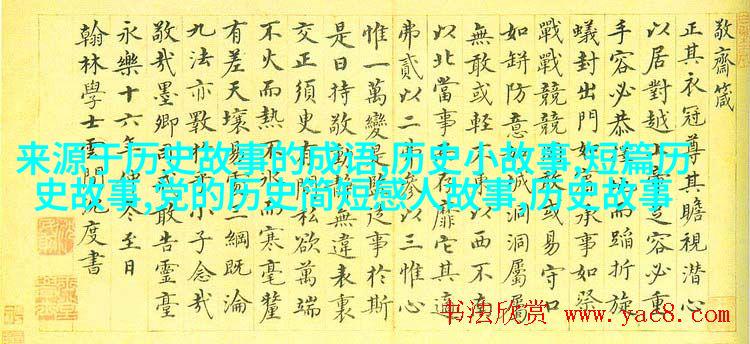 敬齋箴
正其衣冠尊其瞻視潛心
以居對越足容必重
手容必恭而蹈折旋
蟻封出門如承事如祭
戰戰兢兢敢或易守口
如缾防意城洞洞屬屬
無敢或輕東以西不南
以北當事存靡它其適
弗貳以二參以三惟心
惟一萬變是從事於斯
是曰持敬動無違表裏
交正須臾有間私欲萬端
不火而熱不冰而寒毫釐
有差天壤易三綱既淪
九法亦斁小子念哉
敬哉墨卿司敢告靈臺
永樂十六年冬至日
翰林學士雲間沈度書
来源于历史故事的成语,历史小故事,短篇历
史故事,党的历史简短感人故事,历史故事
书法欣赏
www.yac8.com